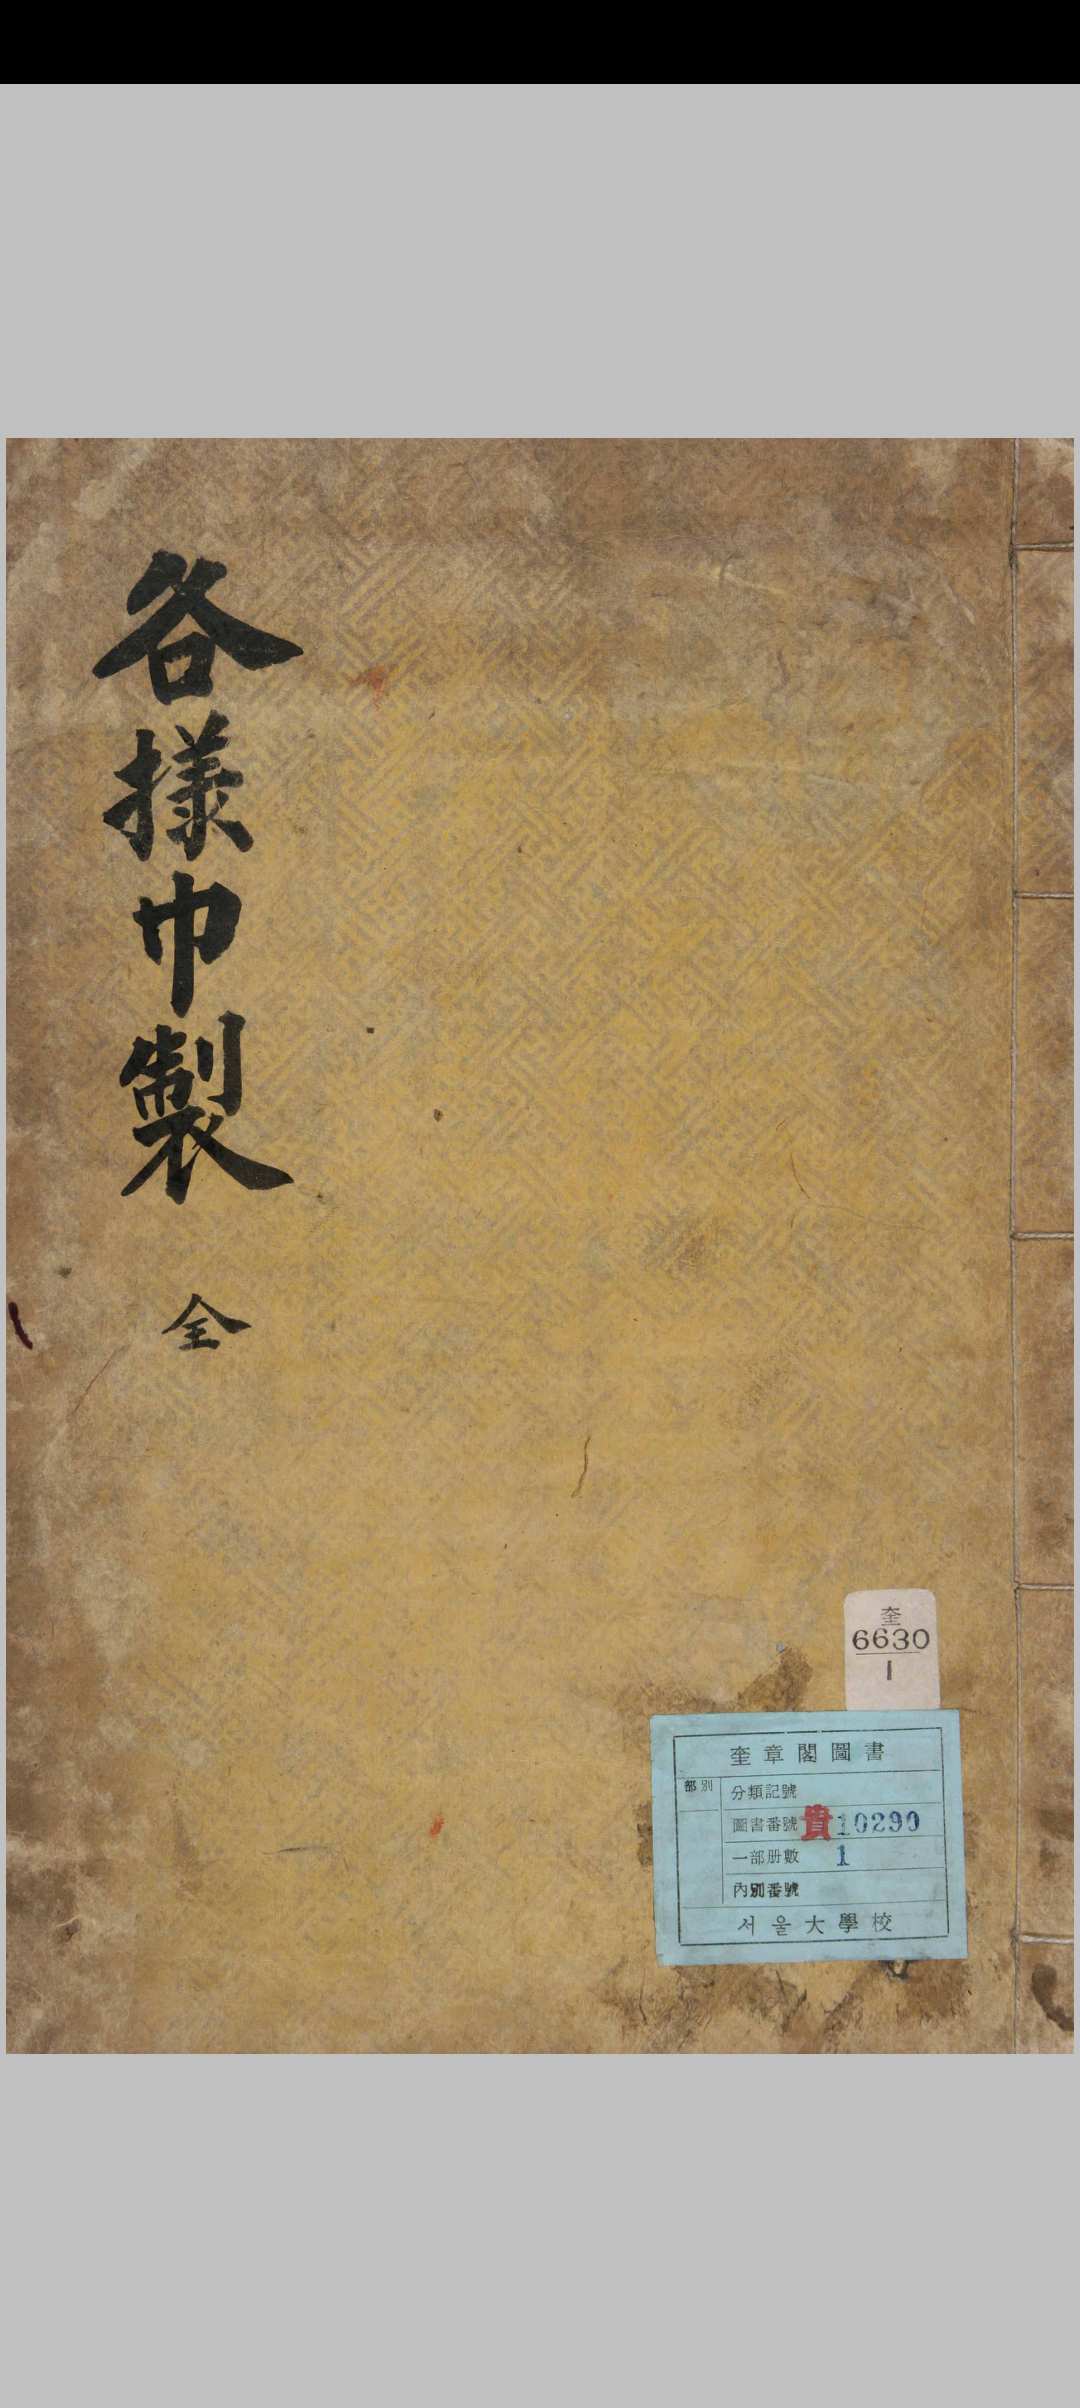 各樣巾製
全
奎
6630
1
奎章閣圖書
部別
分類記號
圖書番號 貴 10290
一部册數 1
內別番號
서울大學校